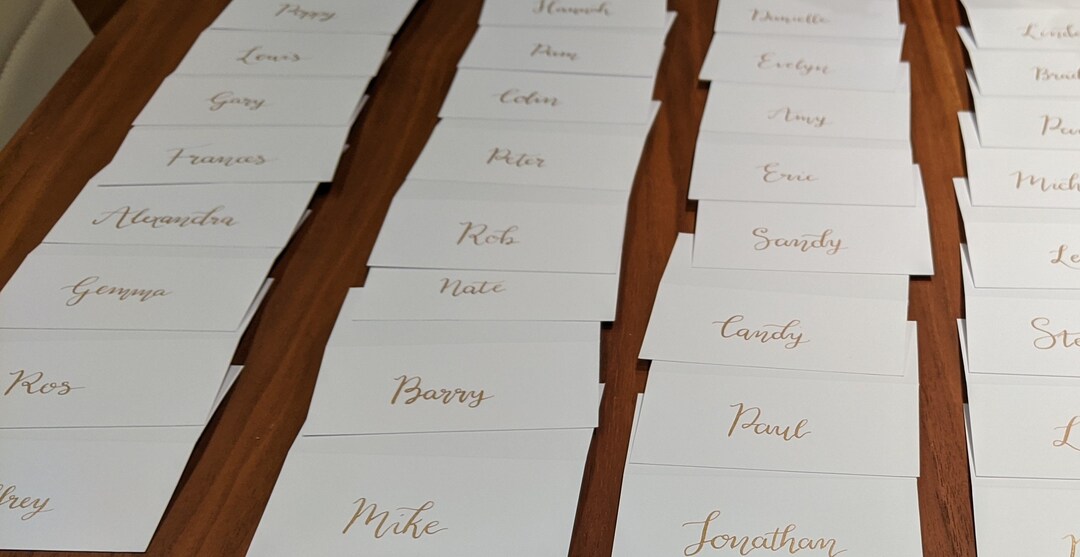 Poppy
Louis
Gary
Frances
Alexandra
Gemma
Ros
frey
Hannah
Pam
Colin
Peter
Rob
Nate
Barry
Mike
Danielle
Evelyn
Amy
Eric
Sandy
Candy
Paul
Jonathan
Linda
Brad
Pa
Mich
Le
Ste
L